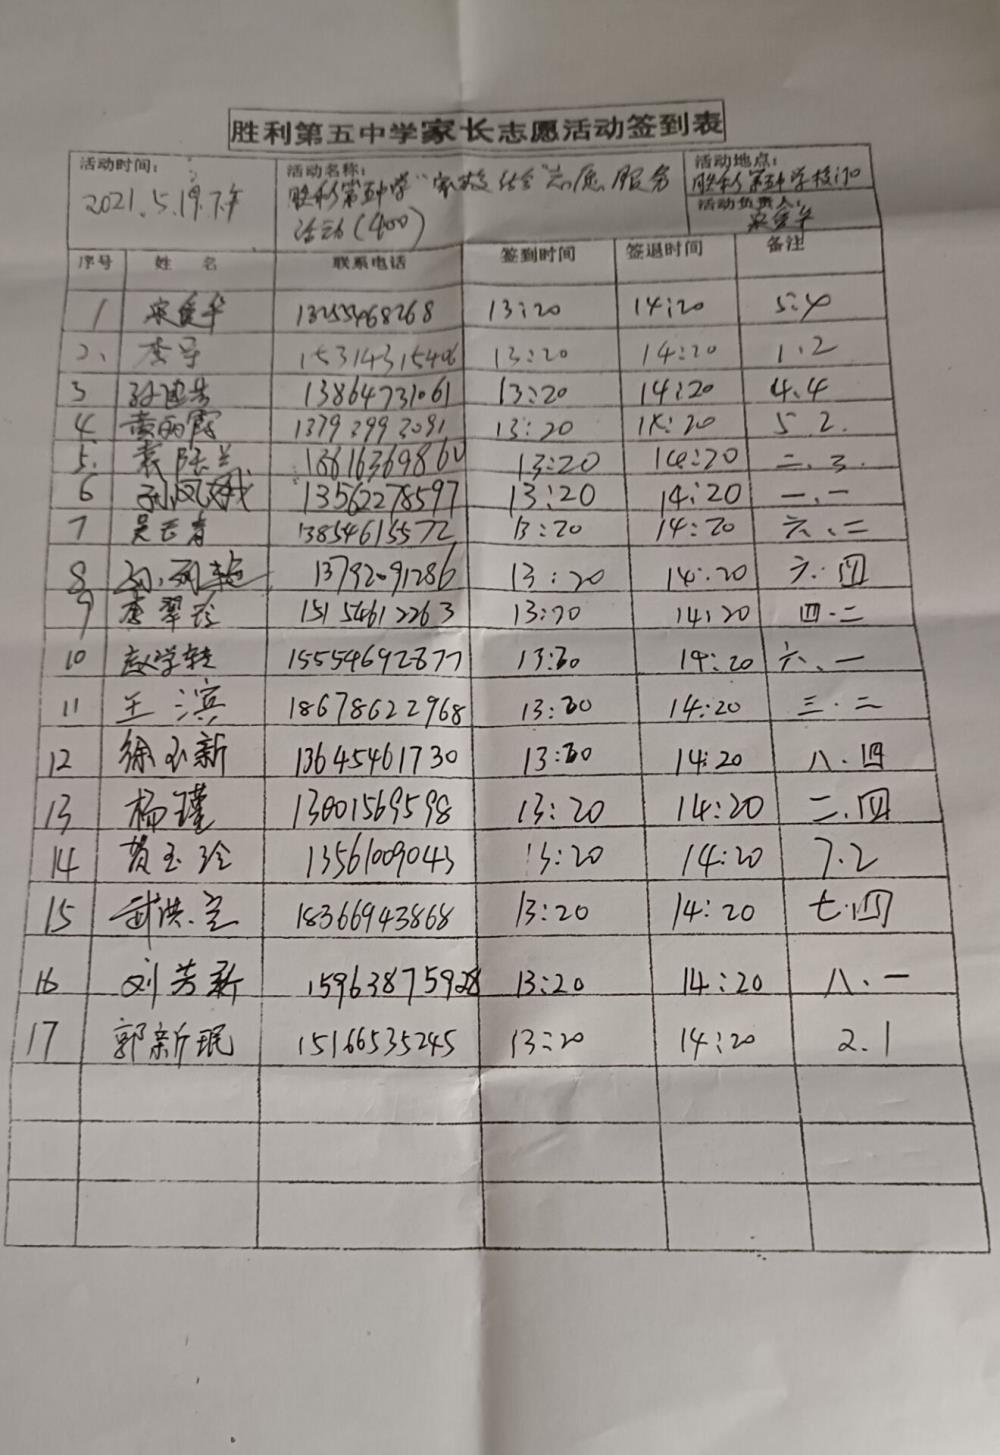 胜利第五中学家长志愿活动签到表
活动时间: 2021.5.19.下午
活动名称: 胜利第五中学"家校结合"志愿服务活动(400)
活动地点: 胜利第五中学校门口
活动负责人: 宋爱华
序号 姓名 联系电话 签到时间 签退时间 备注
1 宋爱华 13255468268 13:20 14:20 5.4
2、 李 15314315406 13:20 14:20 1.2
3 13864731061 13:20 14:20 4.4
4 黄丽霞 13793993091 13:20 14:20 5.2.
5. 袁 兰 13:20 14:20 二.三.
6 孙凤娥 13562278597 13:20 14:20 一.一
7 吴云青 13854615572 13:20 14:20 六、二
8 13792091286 13:20 14:20 六.四
9 李翠珍 15154612263 13:20 14:20 四.二
10 赵学 15554692877 13:20 14:20 六、一
11 王滨 18678622968 13:20 14:20 三.二
12 徐玉新 13645461730 13:20 14:20 八.四
13 杨瑾 13001569598 13:20 14:20 二.四
14 黄玉玲 13561009043 13:20 14:20 7.2
15 武洪 18366943868 13:20 14:20 七.四
16 刘芳新 15963875928 13:20 14:20 八.一
17 郭新珉 15166535245 13:20 14:20 2.1